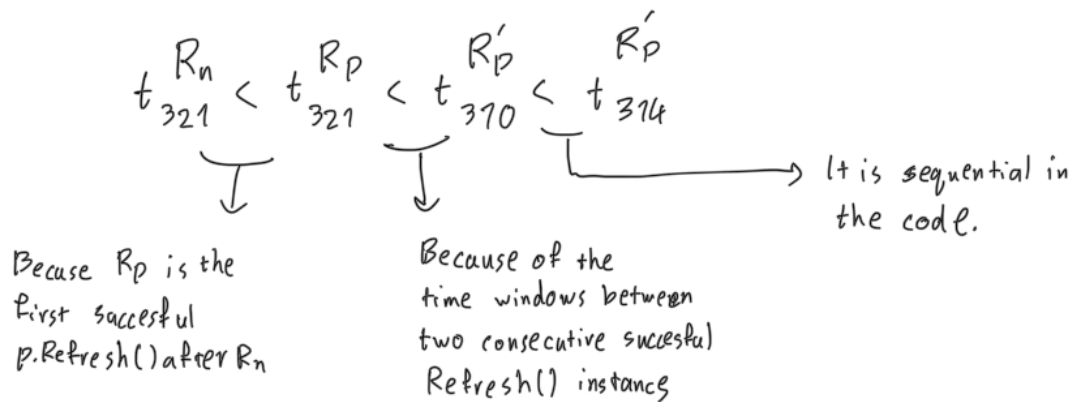 t_321^{R_n} < t_321^{R_p} < t_310^{R'_p} < t_314^{R'_p}
It is sequential in
the code.
Becuse Rp is the
first saccesful
p.Refresh() after Rn
Because of the
time windows between
two consecutive succesful
Refresh() instance